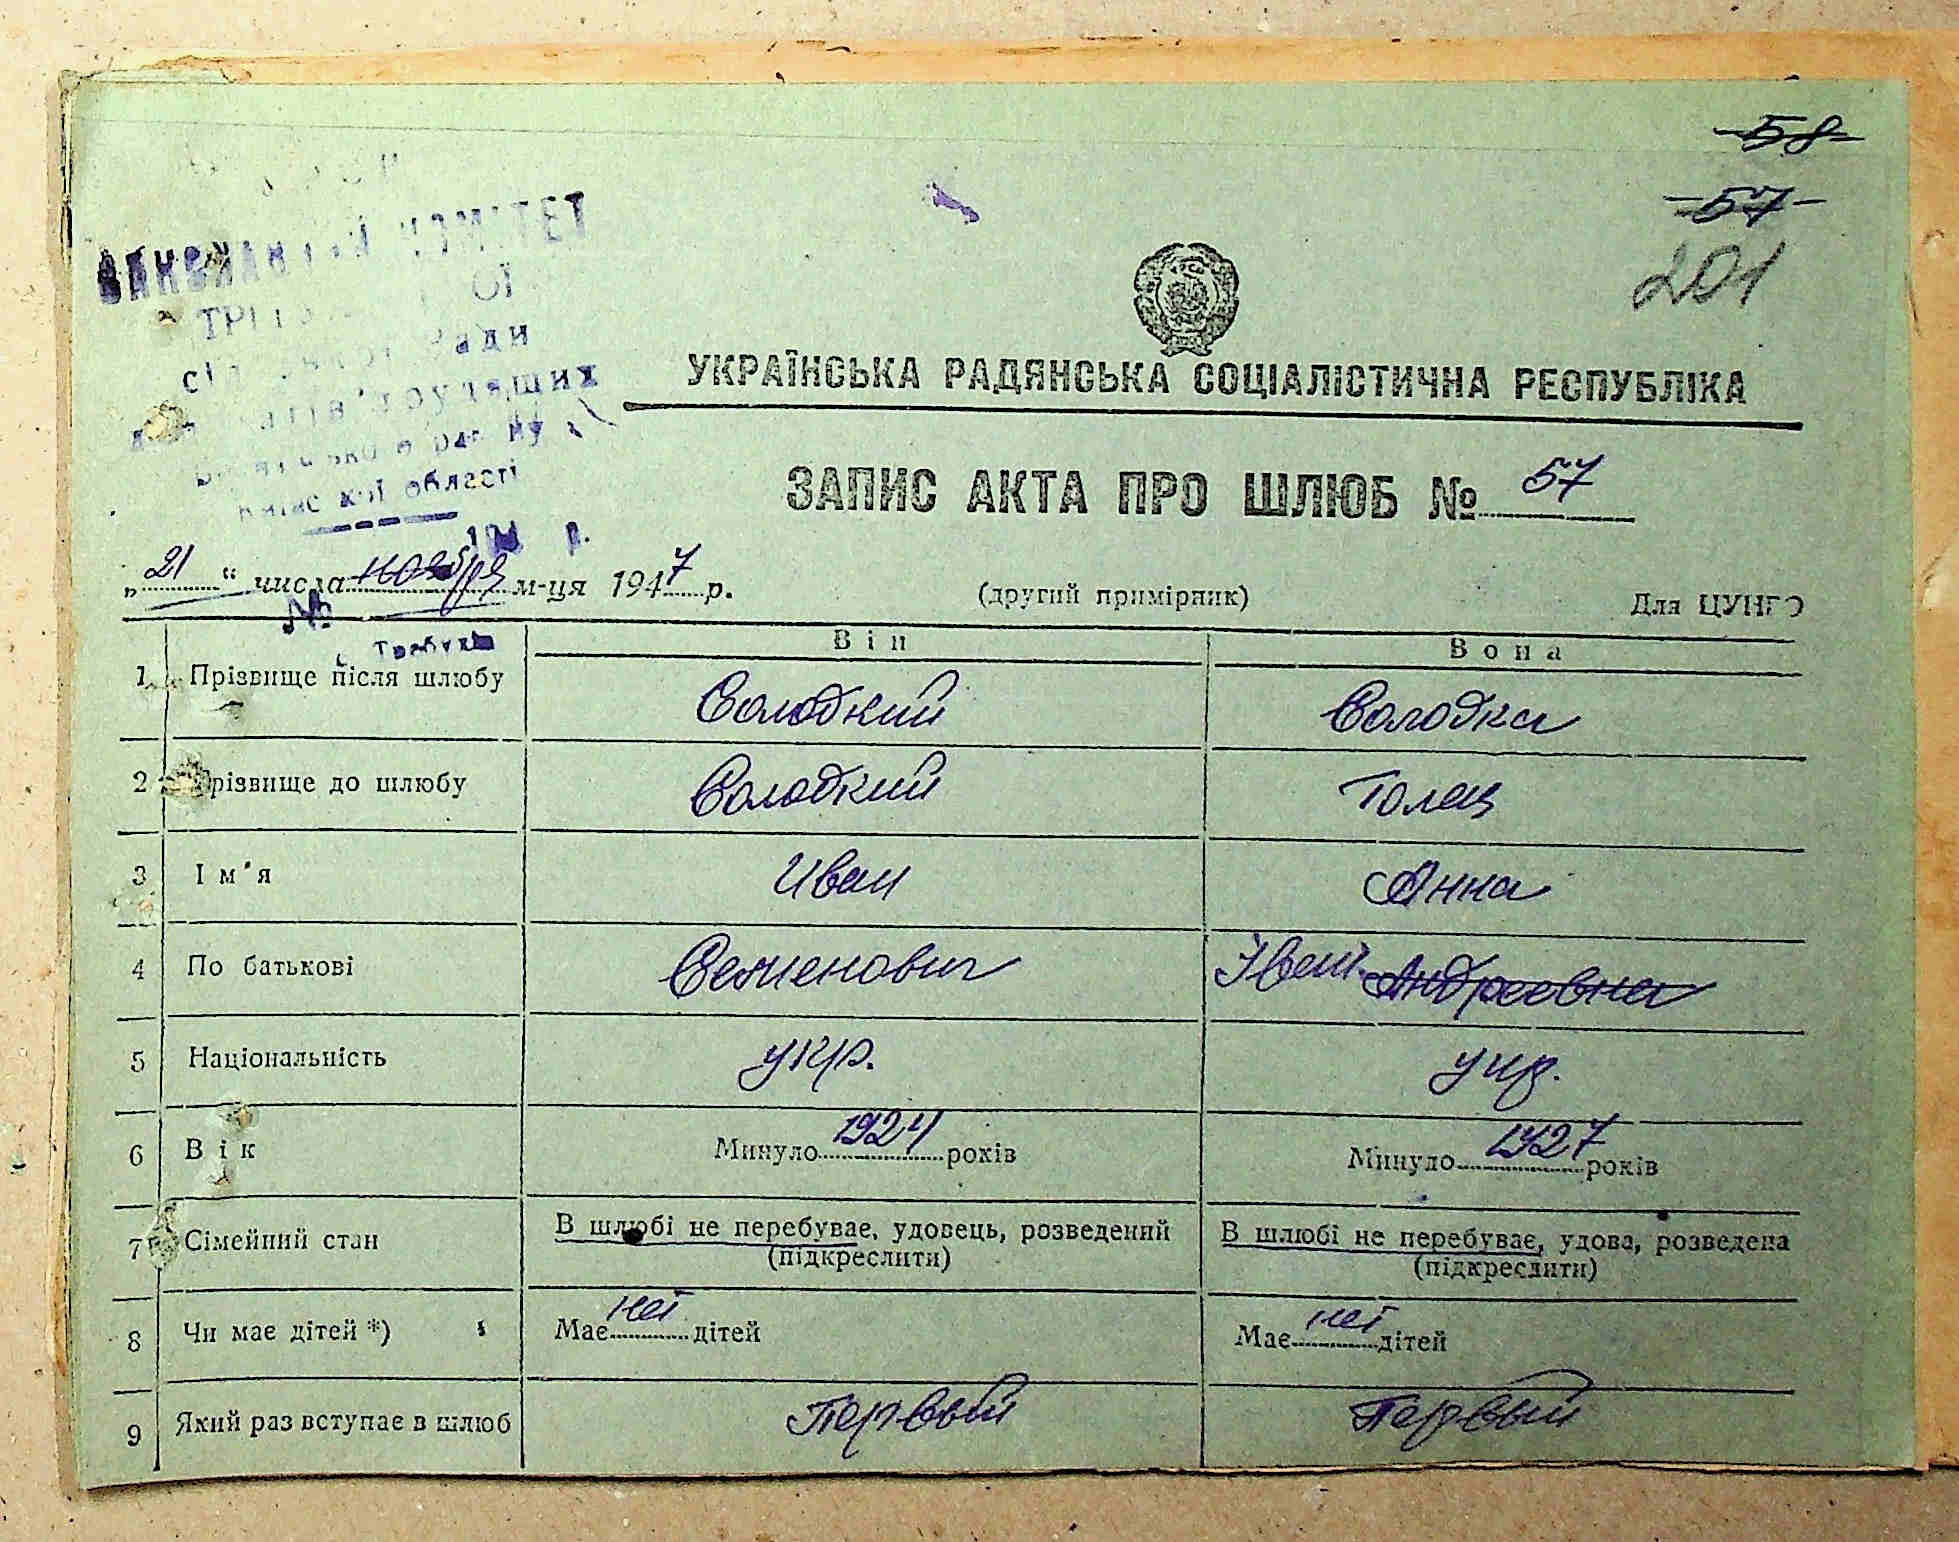 58
57
201
ВИКОНАВЧИЙ КОМІТЕТ
Ради
трудящих
області
УКРАЇНСЬКА РАДЯНСЬКА СОЦІАЛІСТИЧНА РЕСПУБЛІКА
ЗАПИС АКТА ПРО ШЛЮБ № 57
„21“ числа ноября м-ця 1947 р. (другий примірник) Для ЦУНГО
№
Він Вона
1 Прізвище після шлюбу Солодкий Солодка
2 Прізвище до шлюбу Солодкий Голец
3 Ім'я Иван Анна
4 По батькові Семенович Івані. Андреевна
5 Національність укр. укр.
6 Вік Минуло 1924 років Минуло 1927 років
7 Сімейний стан В шлюбі не перебуває, удовець, розведений В шлюбі не перебуває, удова, розведена
(підкреслити) (підкреслити)
8 Чи має дітей *) Має нет дітей Має нет дітей
9 Який раз вступає в шлюб Первый Первый